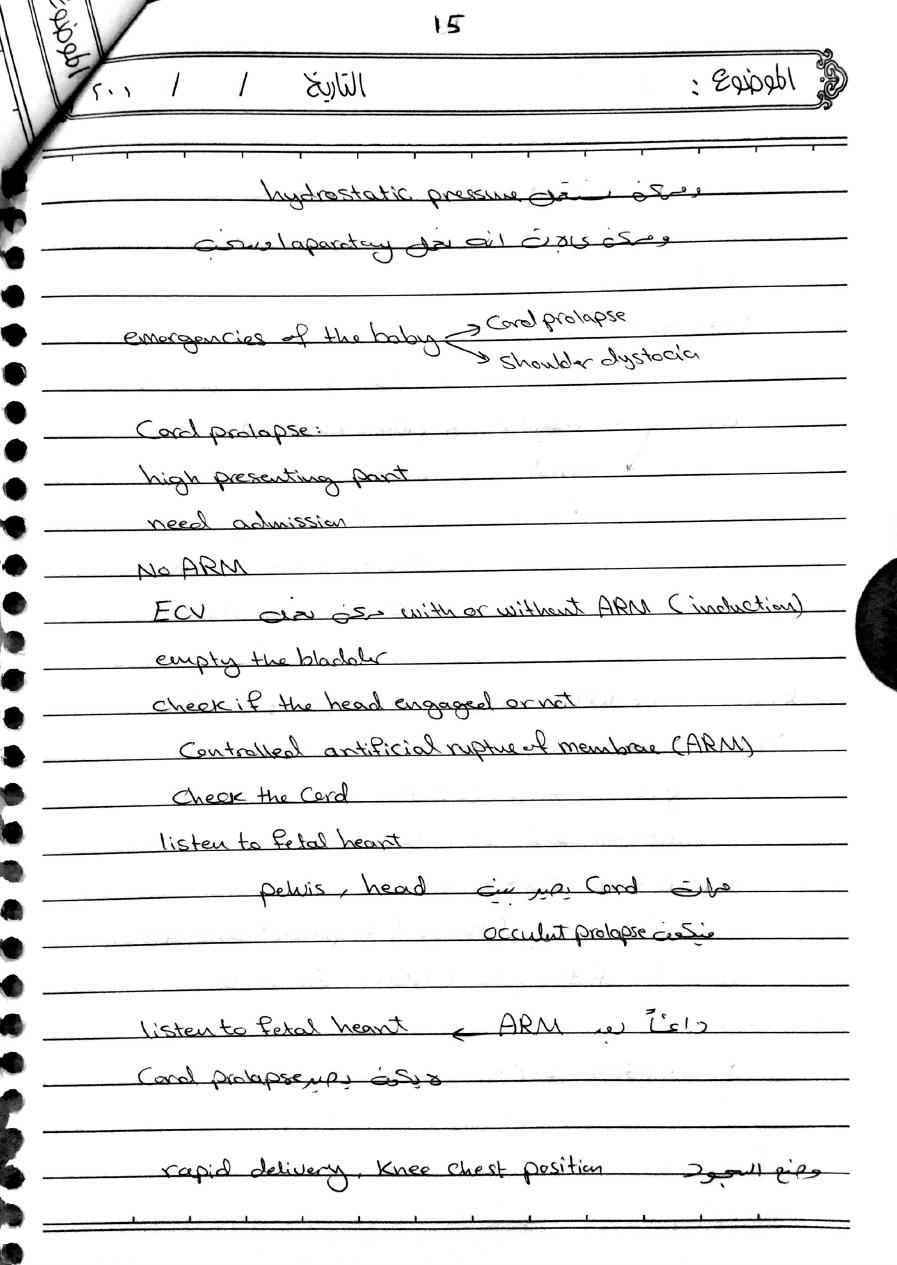 15
الموضوع
الموضوع : التاريخ / / ٢٠٠١
وممكن نستعمل hydrostatic pressure
وممكن laparatoy
emergencies of the baby → Cord prolapse
→ shoulder dystocia
Cord prolapse:
high presenting part
need admission
No ARM
ECV ممكن نعمله with or without ARM (induction)
empty the bladder
check if the head engaged or not
Controlled artificial ruptue of membrae (ARM)
check the Cord
listen to fetal heart
مرات Cord يصير بين pelvis, head
فيكون occulut prolapse
دائماً بعد ARM ← listen to fetal heart
لا يكون يصير Cord prolapse
rapid delivery, Knee chest position وضع السجود